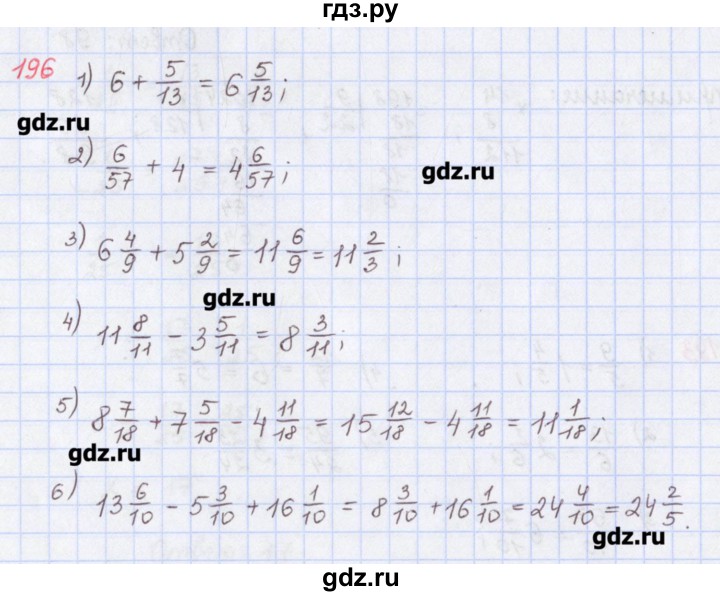 гдз.ру
196
1) 6 + 5/13 = 6 5/13;
gdz.ru
2) 6/57 + 4 = 4 6/57;
gdz.ru
3) 6 4/9 + 5 2/9 = 11 6/9 = 11 2/3;
gdz.ru
4) 11 8/11 - 3 5/11 = 8 3/11;
5) 8 7/18 + 7 5/18 - 4 11/18 = 15 12/18 - 4 11/18 = 11 1/18;
gdz.ru
6) 13 6/10 - 5 3/10 + 16 1/10 = 8 3/10 + 16 1/10 = 24 4/10 = 24 2/5.
gdz.ru
gdz.ru